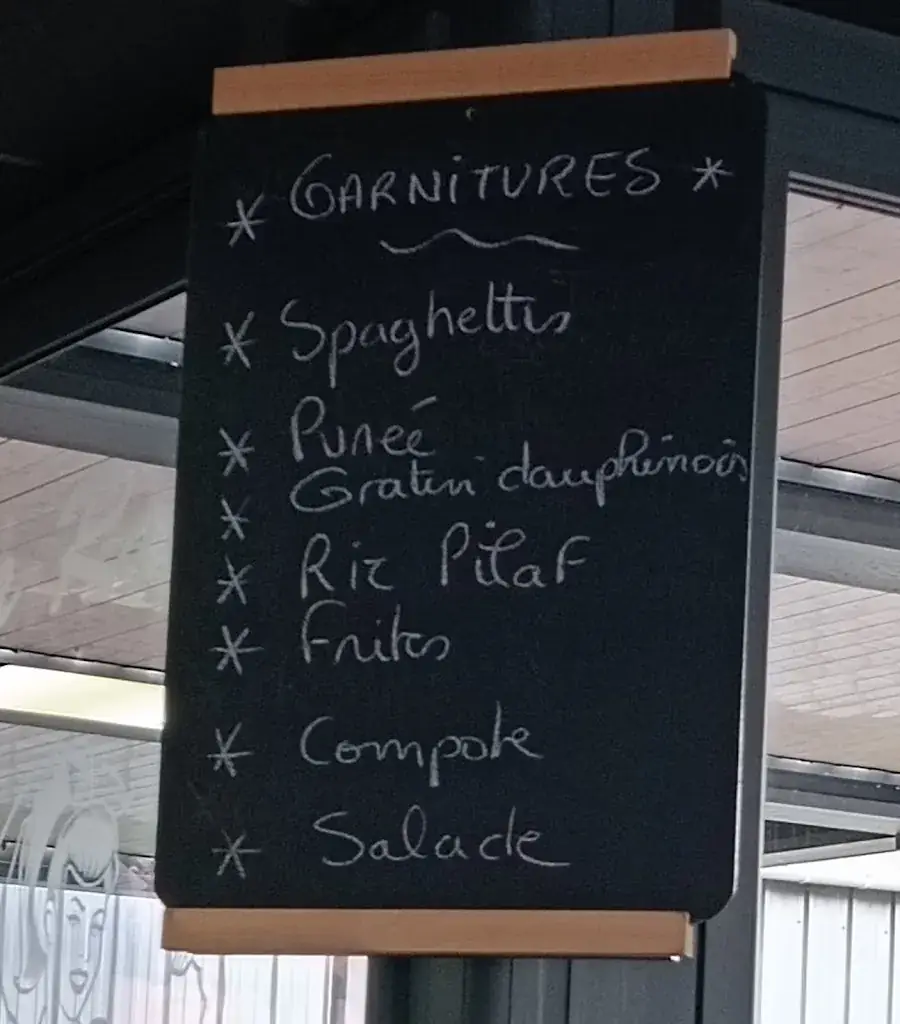 * GARNITURES *
* Spaghettis
* Pureé
* Gratin dauphinois
* Riz Pilaf
* Frites
* Compote
* Salade